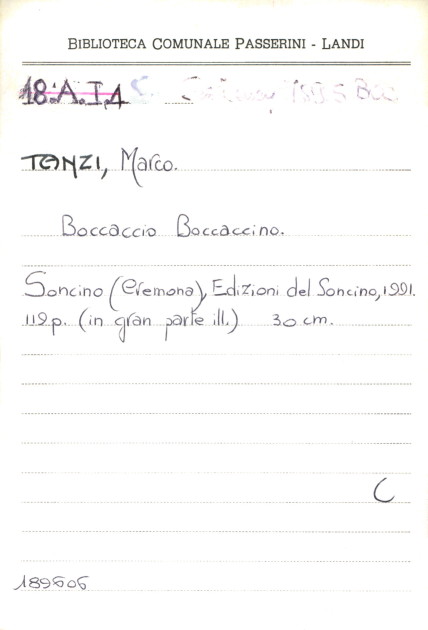 BIBLIOTECA COMUNALE PASSERINI - LANDI
18.A.I.4
TANZI, Marco.
Boccaccio Boccaccino.
Soncino (Cremona), Edizioni del Soncino, 1991.
112p. (in gran parte ill.) 30 cm.
C
189506